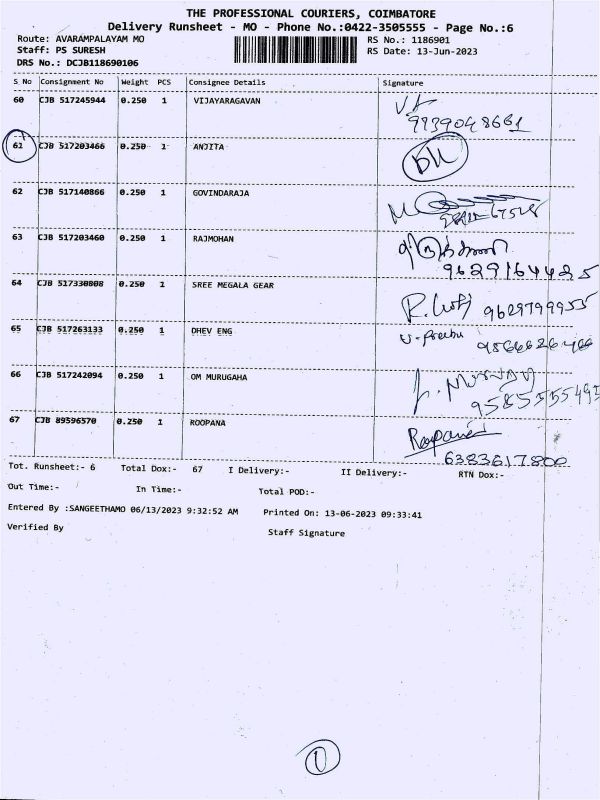 THE PROFESSIONAL COURIERS, COIMBATORE
Delivery Runsheet - MO - Phone No.:0422-3505555 - Page No.:6
Route: AVARAMPALAYAM MO RS No.: 1186901
Staff: PS SURESH RS Date: 13-Jun-2023
DRS No.: DCJB118690106
S No Consignment No Weight PCS Consignee Details Signature
60 CJB 517245944 0.250 1 VIJAYARAGAVAN
61 CJB 517203466 0.250 1 ANJITA
62 CJB 517140866 0.250 1 GOVINDARAJA
63 CJB 517203460 0.250 1 RAJMOHAN
9629164425
64 CJB 517330808 0.250 1 SREE MEGALA GEAR
9629799955
65 CJB 517263133 0.250 1 DHEV ENG
66 CJB 517242094 0.250 1 OM MURUGAHA
67 CJB 89596570 0.250 1 ROOPANA
6383617800
Tot. Runsheet:- 6 Total Dox:- 67 I Delivery:- II Delivery:- RTN Dox:-
Out Time:- In Time:- Total POD:-
Entered By :SANGEETHAMO 06/13/2023 9:32:52 AM Printed On: 13-06-2023 09:33:41
Verified By Staff Signature
1